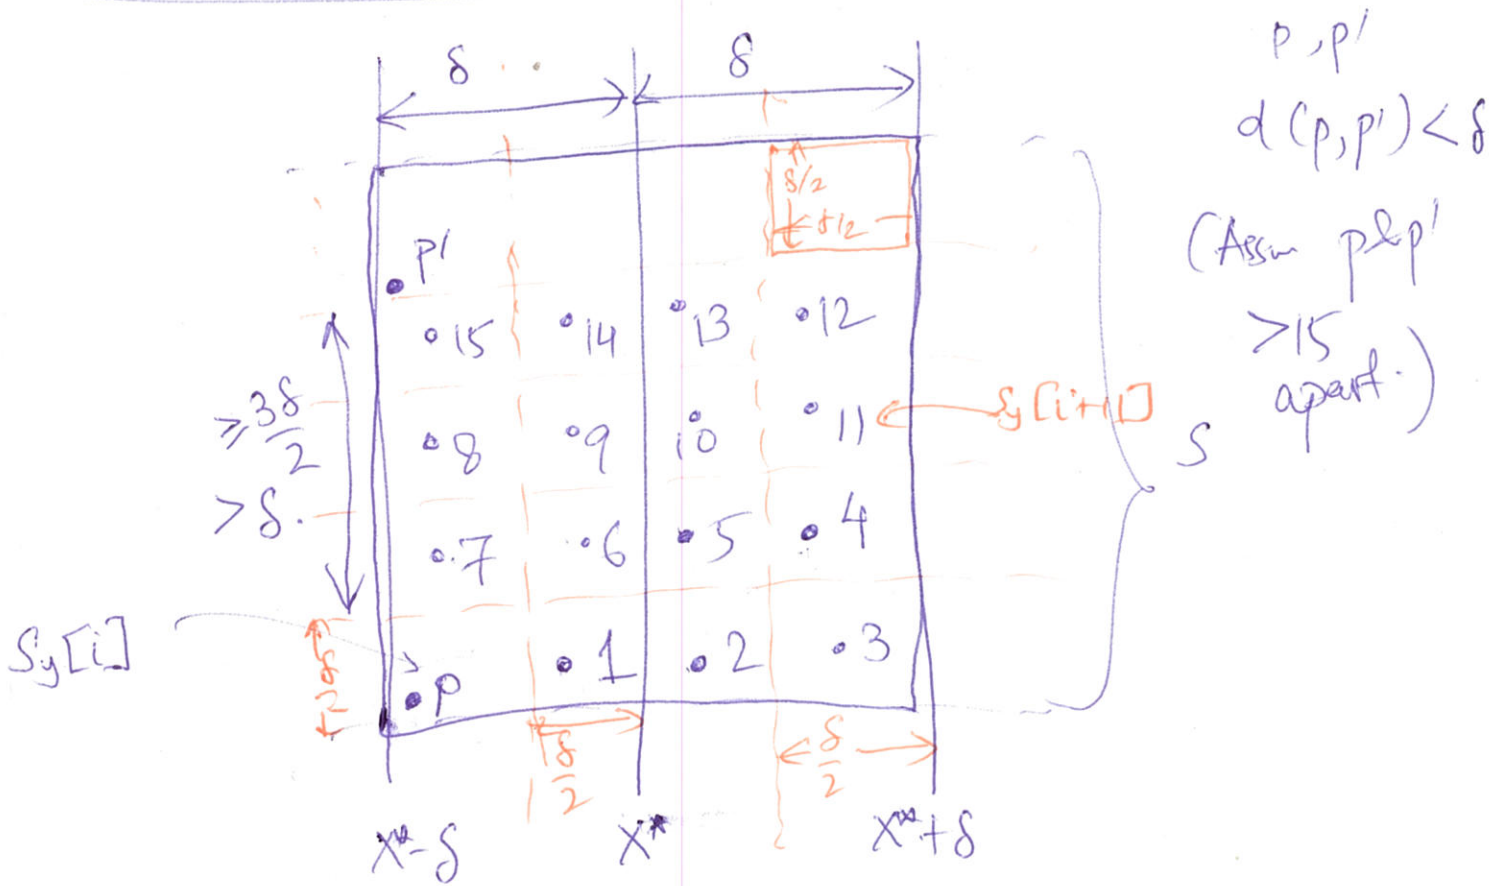 δ
δ
p, p'
d (p, p') < δ
(Assm p & p'
>15
apart.)
δ/2
δ/2
p'
•15
•14
•13
•12
≥ 3δ/2
> δ.
•8
•9
10
•11
Sy[i+1]
S
•7
•6
•5
•4
Sy[i]
δ/2
•p
•1
•2
•3
δ/2
δ/2
X*-δ
X*
X*+δ